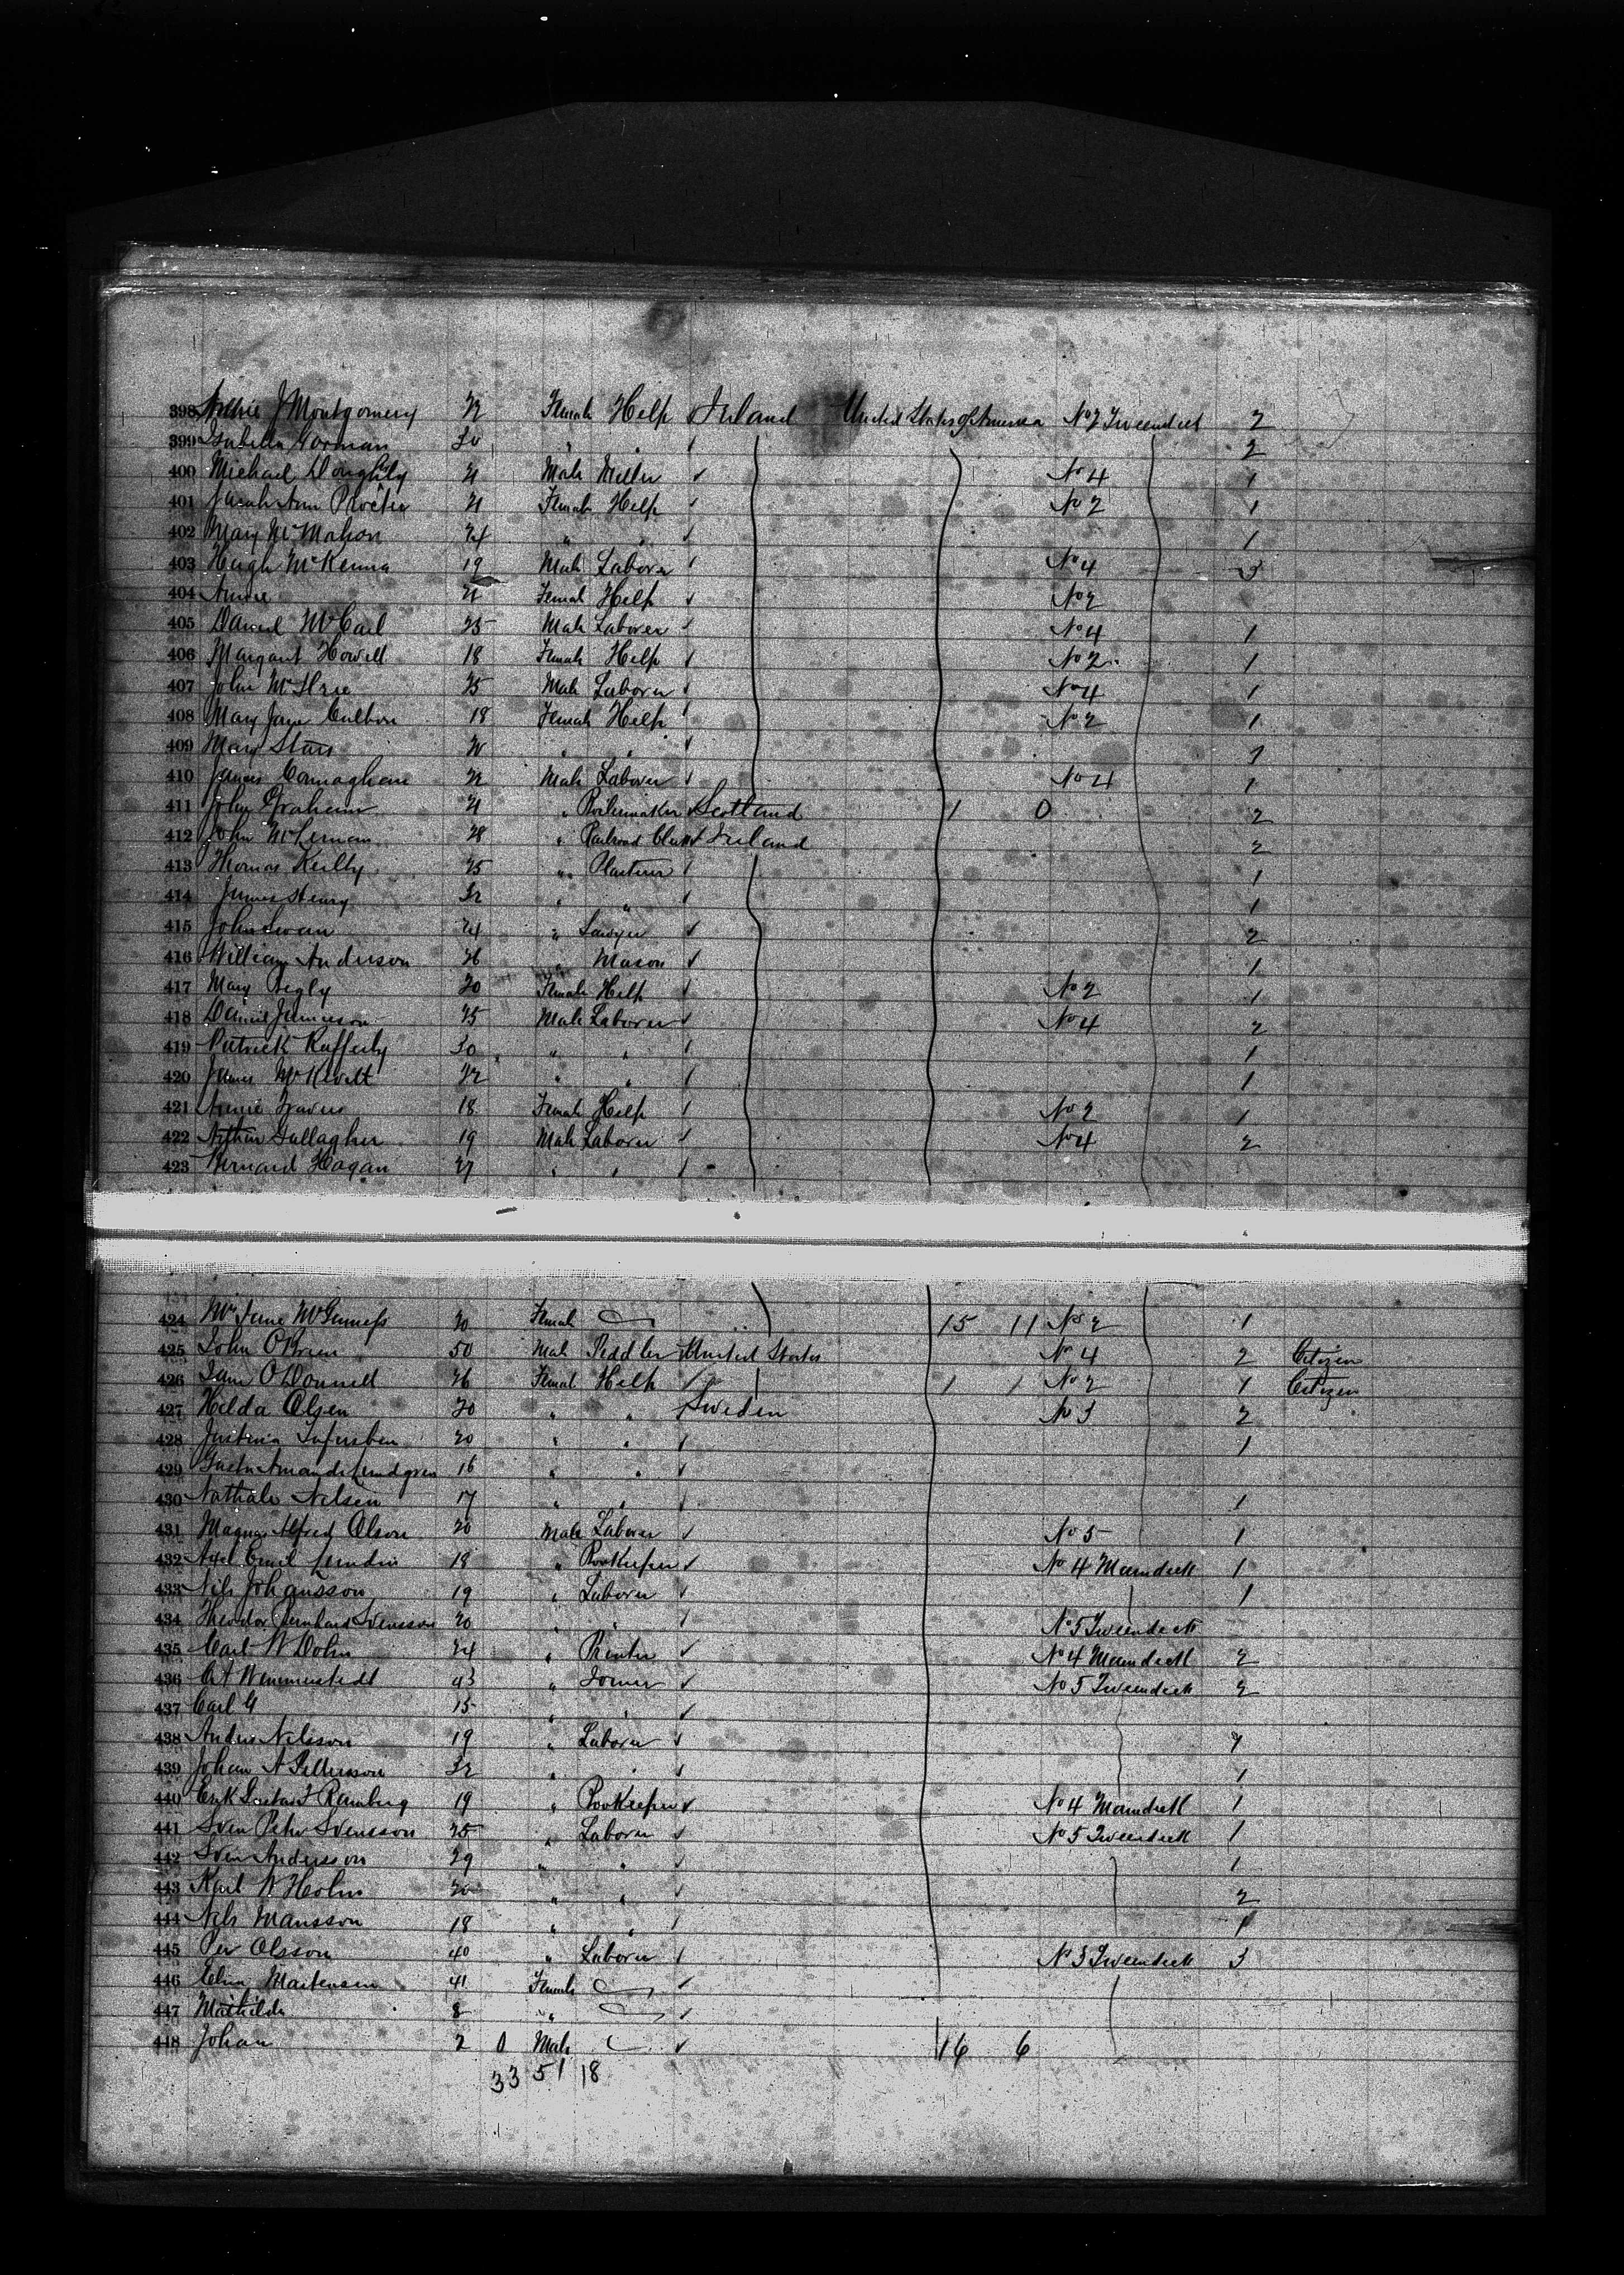 398 Nellie J Montgomery 22 Female Help Ireland United States of America No 2 Tweendeck 2
399 Isabella Gorman 30 " " 2
400 Michael Doughty 21 Male Miller No 4 1
401 Sarah Ann Proctor 21 Female Help No 2 1
402 Mary McMahon 24 " " 1
403 Hugh McKenna 19 Male Laborer No 4 3
404 Annie 21 Female Help No 2
405 Daniel McCarl 25 Male Laborer No 4 1
406 Margaret Howell 18 Female Help No 2 1
407 John 25 Male Laborer No 4 1
408 Mary Jane 18 Female Help No 2 1
409 Mary 20 " " 1
410 James Carnaghan 22 Male Laborer No 4 1
411 John Graham 21 " Boilermaker Scotland 1 0 2
412 John McLernan 28 " Railroad Clerk Ireland 2
413 Thomas Reilly 25 " Plasterer 1
414 James Henry 32 " " 1
415 John Swan 24 " Sawyer 2
416 William Anderson 26 " Mason 1
417 Mary Begly 20 Female Help No 2 1
418 Daniel Jamieson 25 Male Laborer No 4 2
419 Patrick Rafferty 30 " " 1
420 James McKevitt 22 " " 1
421 Annie Travers 18 Female Help No 2 1
422 Arthur Gallagher 19 Male Laborer No 4 2
423 Bernard Hagan 27 " "
424 Mrs Jane McGuiness 30 Female 15 11 No 2 1
425 John O'Brien 50 Male Peddler United States No 4 2 Citizen
426 Jane O'Donnell 26 Female Help 1 1 No 2 1 Citizen
427 Hilda Olsen 20 " " Sweden No 3 2
428 Justina 20 " " 1
429 Amanda Lundgren 16 " "
430 Nathalie Nelsen 17 " " 1
431 Magnus Alfred Olson 20 Male Laborer No 5 1
432 Axel Emil Lundin 18 " Bookeeper No 4 Maindeck 1
433 Nils Johansson 19 " Laborer 1
434 Theodor Bernhard Svensson 20 " " No 5 Tweendeck
435 Carl W Dohn 24 " Printer No 4 Maindeck 2
436 Wennerstedt 43 " Joiner No 5 Tweendeck 2
437 Carl G 15 " "
438 Anders Nilsson 19 " Laborer 1
439 Johan A Pettersson 32 " " 1
440 Erik Gustaf F Ramberg 19 " Bookeeper No 4 Maindeck 1
441 Sven Peter Svensson 25 " Laborer No 5 Tweendeck 1
442 Sven Andersson 29 " " 1
443 Karl W Holm 20 " " 2
444 Nils Mansson 18 " " 1
445 Per Olsson 40 " Laborer No 3 Tweendeck 3
446 Elna Martensen 41 Female
447 Mathilda 8 "
448 Johan 2 0 Male 16 6
33 51 18